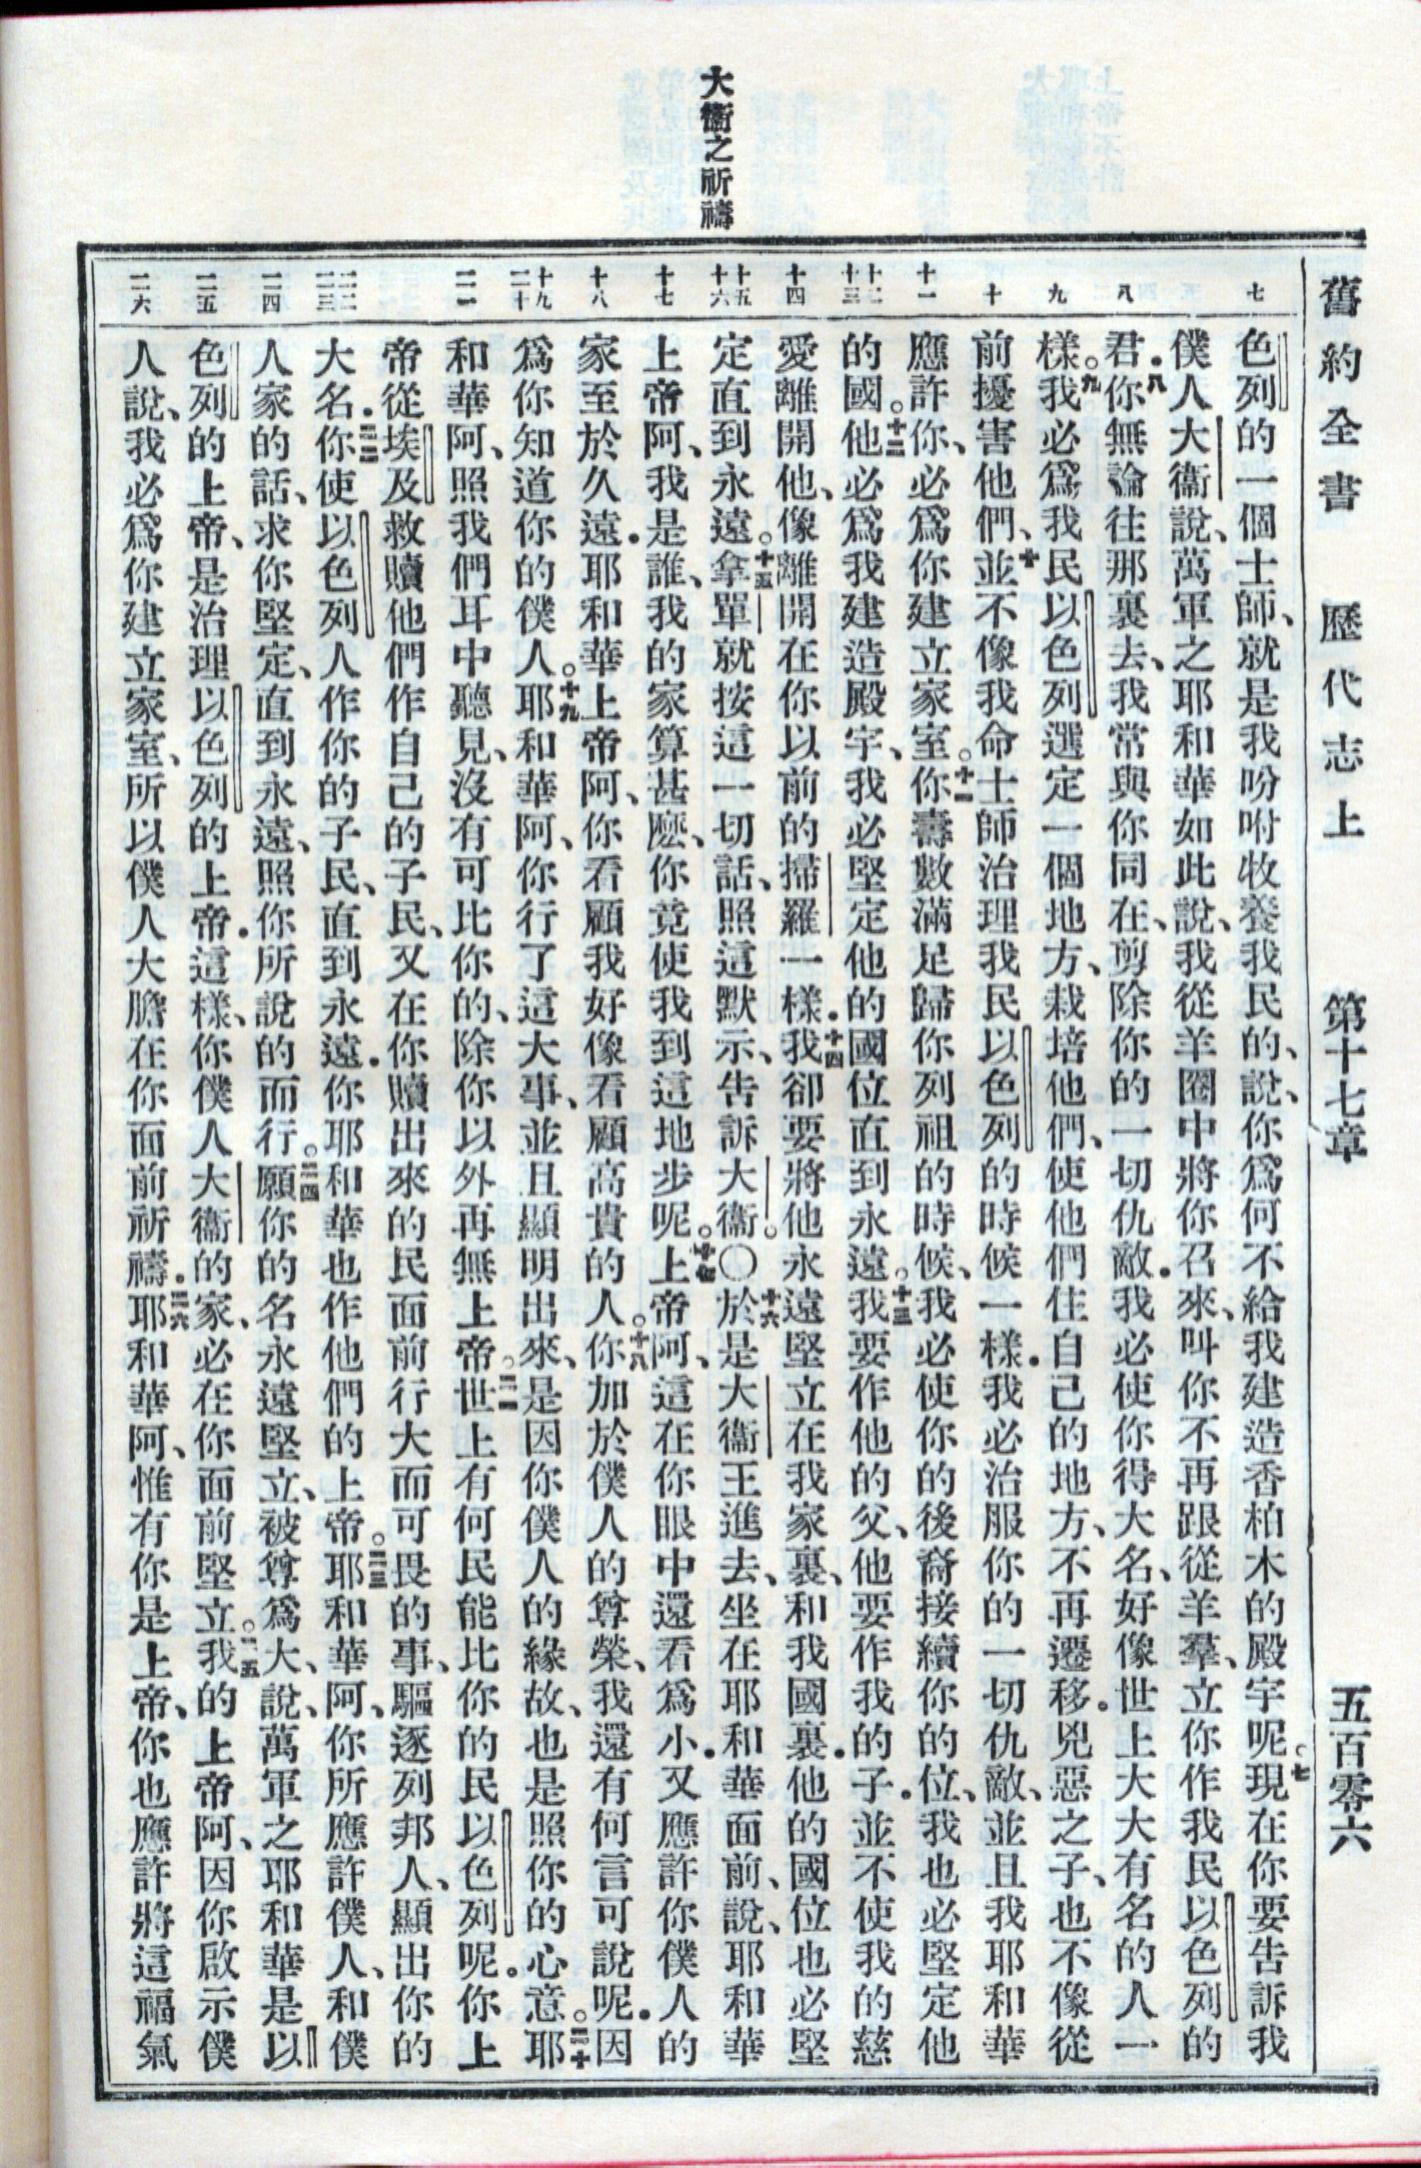 舊約全書 歷代志上 第十七章 五百零六
大衞之祈禱
七
八
九
十
十一
十二
十三
十四
十五
十六
十七
十八
十九
二十
二一
二二
二三
二四
二五
二六
色列的一個士師、就是我吩咐牧養我民的、說、你爲何不給我建造香柏木的殿宇呢。七現在你要告訴我
僕人大衞說、萬軍之耶和華如此說、我從羊圈中將你召來、叫你不再跟從羊羣、立你作我民以色列的
君．八你無論往那裏去、我常與你同在、剪除你的一切仇敵．我必使你得大名、好像世上大大有名的人一
樣。九我必爲我民以色列選定一個地方、栽培他們、使他們住自己的地方、不再遷移。兇惡之子、也不像從
前擾害他們、十並不像我命士師治理我民以色列的時候一樣．我必治服你的一切仇敵、並且我耶和華
應許你、必爲你建立家室。十一你壽數滿足歸你列祖的時候、我必使你的後裔接續你的位、我也必堅定他
的國。十二他必爲我建造殿宇、我必堅定他的國位直到永遠。十三我要作他的父、他要作我的子．並不使我的慈
愛離開他、像離開在你以前的掃羅一樣．十四我卻要將他永遠堅立在我家裏、和我國裏．他的國位也必堅
定直到永遠。十五拿單就按這一切話、照這默示、告訴大衞。〇十六於是大衞王進去、坐在耶和華面前、說、耶和華
上帝阿、我是誰、我的家算甚麼、你竟使我到這地步呢。十七上帝阿、這在你眼中還看爲小．又應許你僕人的
家至於久遠．耶和華上帝阿、你看顧我好像看顧高貴的人。十八你加於僕人的尊榮、我還有何言可說呢．因
爲你知道你的僕人。十九耶和華阿、你行了這大事、並且顯明出來、是因你僕人的緣故、也是照你的心意。二十耶
和華阿、照我們耳中聽見、沒有可比你的、除你以外再無上帝。二一世上有何民能比你的民以色列呢．你上
帝從埃及救贖他們作自己的子民、又在你贖出來的民面前行大而可畏的事、驅逐列邦人、顯出你的
大名．二二你使以色列人作你的子民、直到永遠．你耶和華也作他們的上帝。二三耶和華阿、你所應許僕人、和僕
人家的話、求你堅定、直到永遠、照你所說的而行。二四願你的名永遠堅立、被尊爲大、說、萬軍之耶和華是以
色列的上帝、是治理以色列的上帝．這樣、你僕人大衞的家、必在你面前堅立。二五我的上帝阿、因你啟示僕
人說、我必爲你建立家室、所以僕人大膽在你面前祈禱．二六耶和華阿、惟有你是上帝、你也應許將這福氣